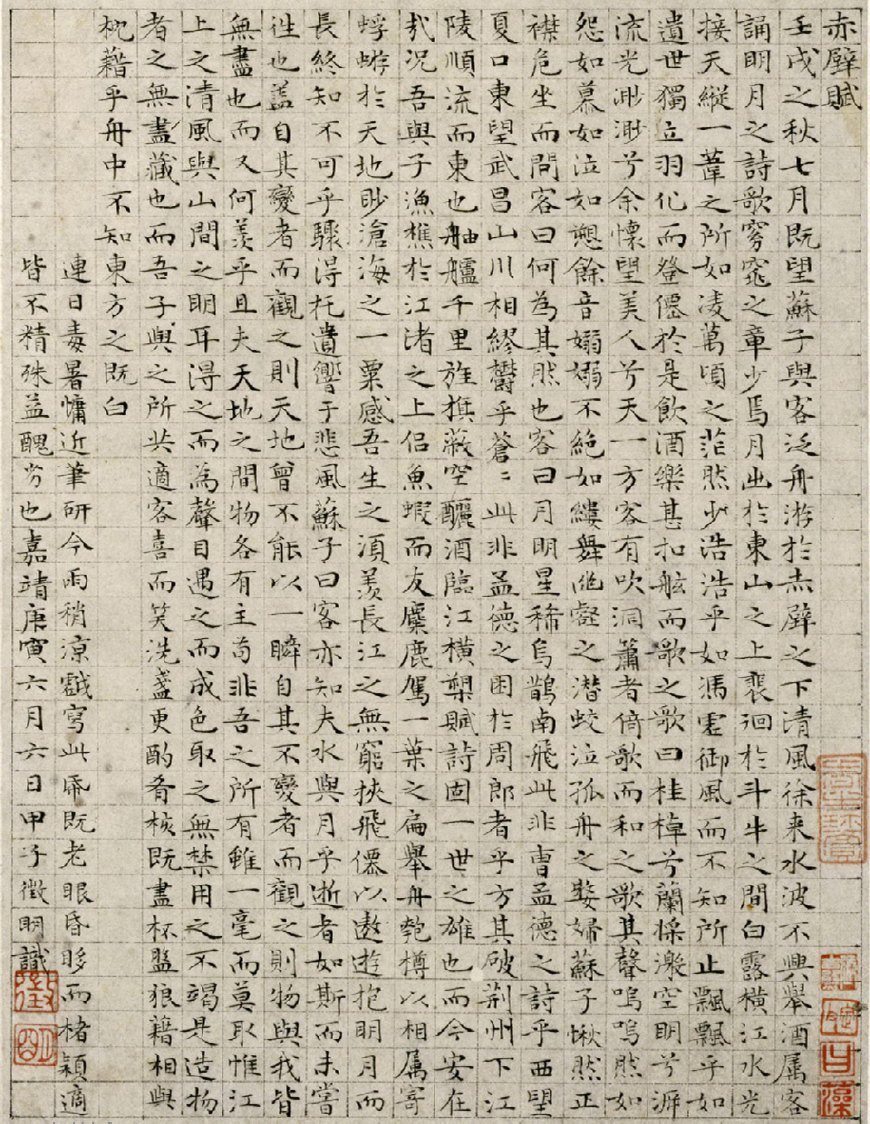 赤壁賦
壬戌之秋七月既望蘇子與客泛舟游於赤壁之下清風徐来水波不興舉酒属客
誦明月之詩歌窈窕之章少焉月出於東山之上裵徊於斗牛之間白露横江水光
接天縱一葦之所如凌萬頃之茫然少浩浩乎如馮虚御風而不知所止飄飄乎如
遺世獨立羽化而登僊於是飲酒樂甚扣舷而歌之歌曰桂棹兮蘭槳激空明兮泝
流光渺渺兮余懷望美人兮天一方客有吹洞簫者倚歌而和之歌其聲嗚嗚然如
怨如慕如泣如愬餘音嫋嫋不絶如縷舞幽壑之潜蛟泣孤舟之嫠婦蘇子愀然正
襟危坐而問客曰何為其然也客曰月明星稀烏鵲南飛此非曹孟德之詩乎西望
夏口東望武昌山川相繆欝乎蒼〻此非孟德之困於周郎者乎方其破荆州下江
陵順流而東也舳艫千里旌旗蔽空釃酒臨江横槊賦詩固一世之雄也而今安在
㢤况吾與子漁樵於江渚之上侣魚蝦而友麋鹿駕一葉之扁舉舟匏樽以相属寄
蜉蝣於天地眇滄海之一粟感吾生之湏羨長江之無窮挟飛僊以遨遊抱明月而
長終知不可乎驟得托遺響于悲風蘇子曰客亦知夫水與月乎逝者如斯而未嘗
徃也盖自其變者而觀之則天地曾不能以一瞬自其不變者而觀之則物與我皆
無盡也而又何羡乎且夫天地之間物各有主苟非吾之所有雖一毫而莫取惟江
上之清風與山間之明耳得之而為聲目遇之而成色取之無禁用之不竭是造物
者之無盡藏也而吾子與之所共適客喜而笑洗盞更酌肴核既盡杯盤狼藉相與
枕藉乎舟中不知東方之既白
連日毒暑慵近筆研今雨稍凉戲寫此紙既老眼昏眵而楮穎適
皆不精殊益醜劣也嘉靖庚寅六月六日甲子徵明識
徵
明